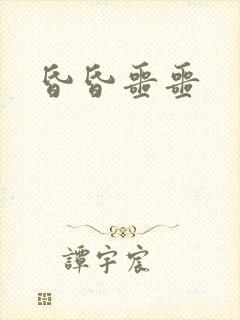 昏昏噩噩
譚宇宸